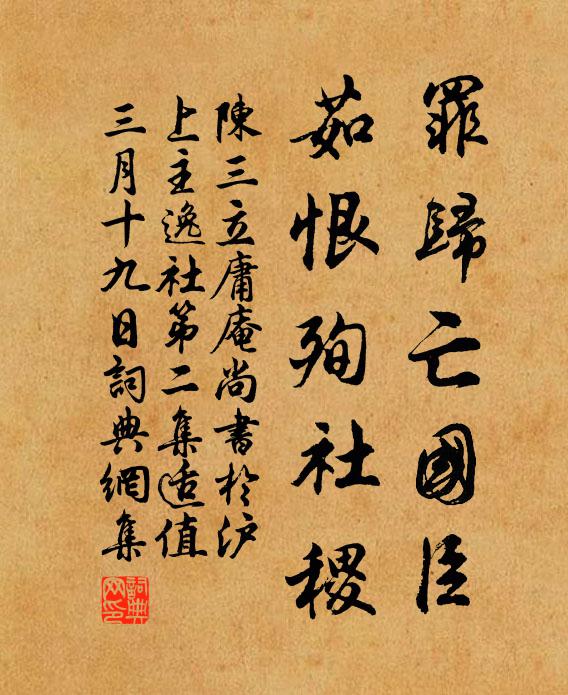 罪歸亡國臣
茹恨殉社稷
陳三立庸庵尚書於沪
上主逸社第二集适值
三月十九日詞典網集